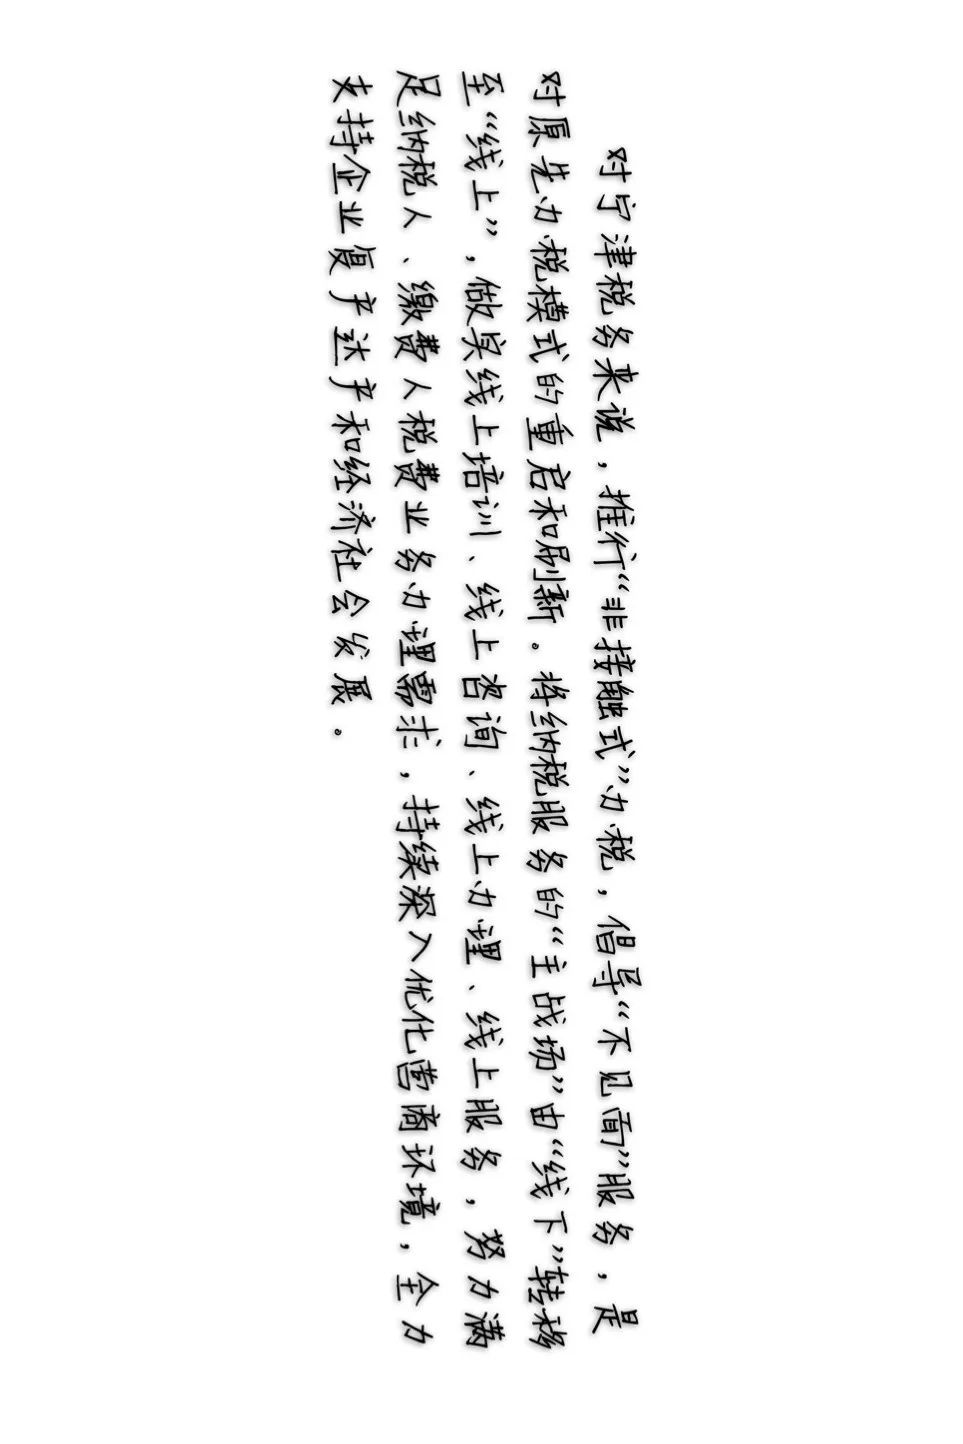 对宁津税务来说，推行“非接触式”办税，倡导“不见面”服务，是
对原先办税模式的重启和刷新。将纳税服务的“主战场”由“线下”转移
至“线上”，做实线上培训、线上咨询、线上办理、线上服务，努力满
足纳税人、缴费人税费业务办理需求，持续深入优化营商环境，全力
支持企业复产达产和经济社会发展。